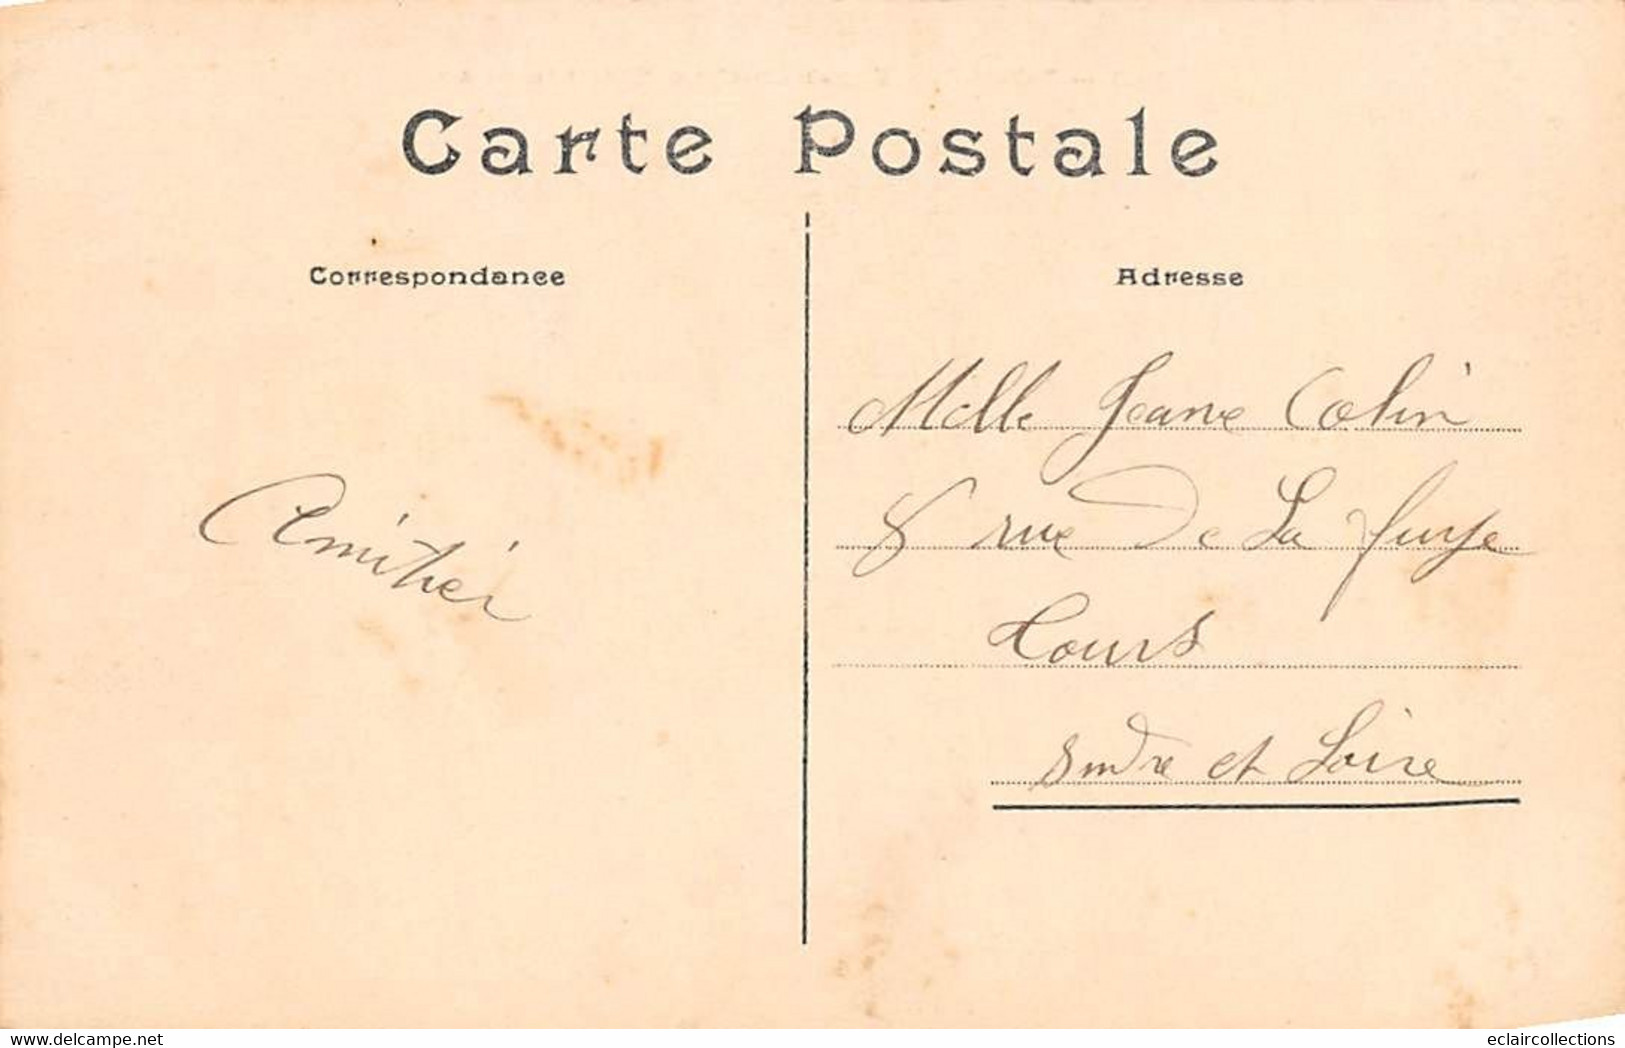 Carte Postale
Correspondance
Adresse
Amitiés
Melle Jeane Colin
8 rue De La fuye
Tours
Indre et Loire
www.delcampe.net
eclaircollections